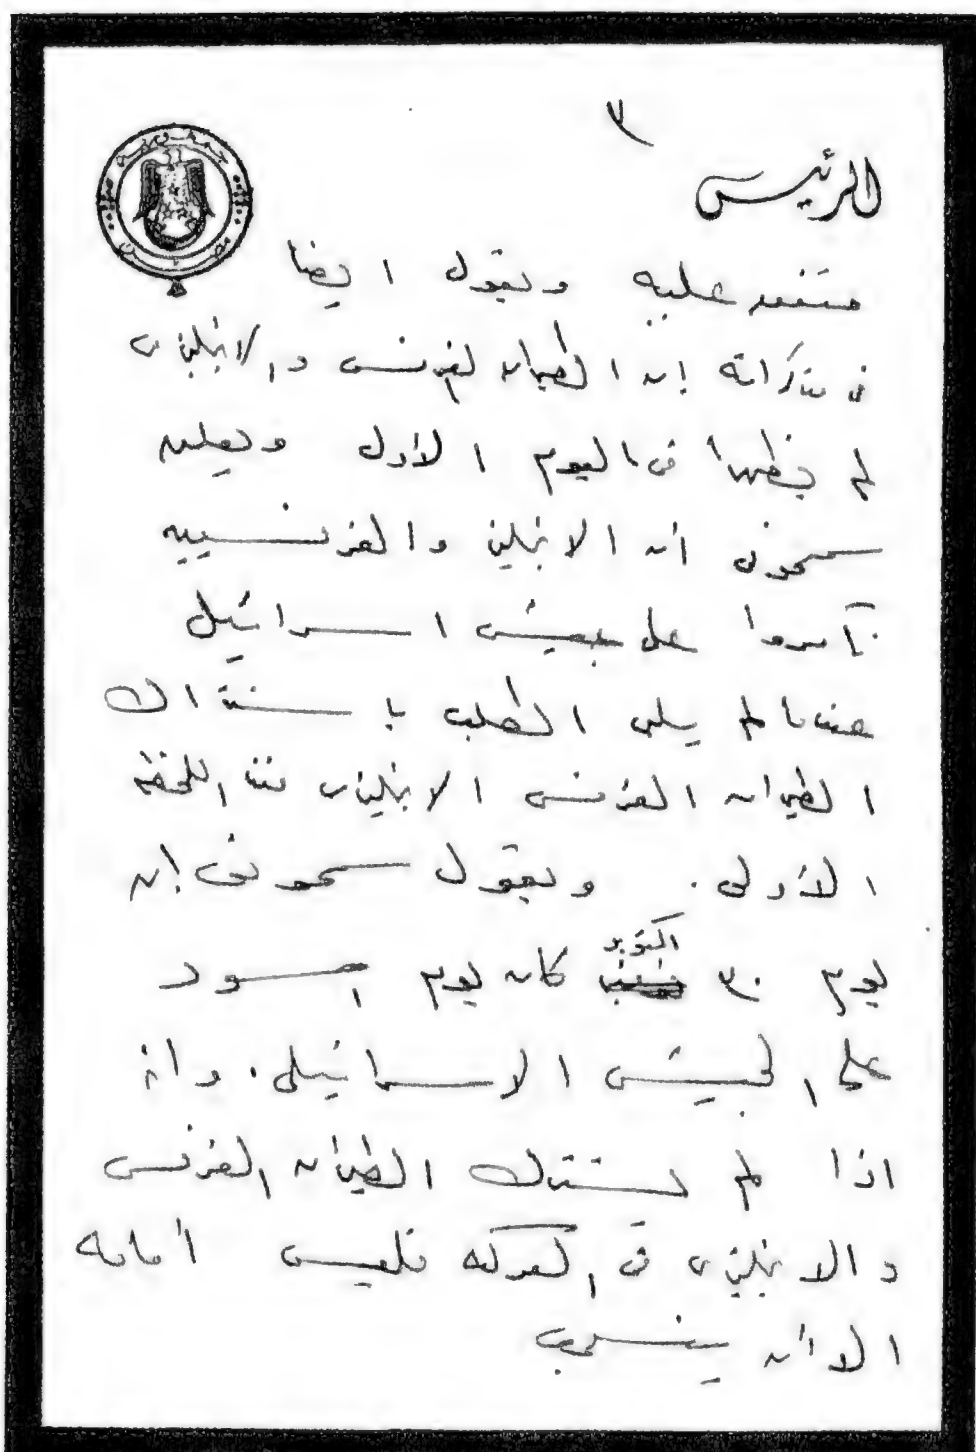 ٣
الرئيس
متفق عليه ويقول ايضا
فى مذكراته إن الطيران الفرنسى والانجليزى
لم يظهرا فى اليوم الأول ويعلن
سمحونى ان الانجليز والفرنسيين
تآمروا على جيش اسرائيل
عندما لم يلبى الطلب باشتراك
الطيران الفرنسى الانجليزى منذ اللحظه
الأولى . ويقول سمحونى إن
يوم ٣٠ اكتوبر كان يوم اسود
على الجيش الاسرائيلى . وانه
اذا لم يشترك الطيران الفرنسى
والانجليزى فى المعركه فليس أمامه
الا أن ينسحب